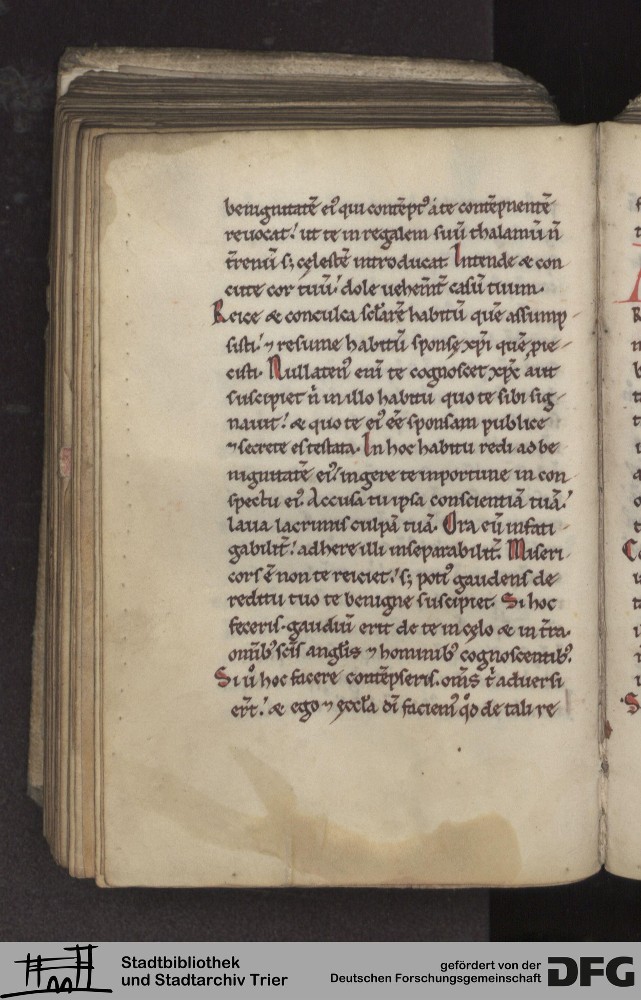 benignitatē ei᷒ qui contēpt᷒ a te contēpnentē
reuocat. ut te in regalem suū thalamū ñ
t̄renū s; cęlestē introducat. Intende & con
cute cor tuū. dole uehem̄t casū tuum.
Reice & conculca sclarē habitū quē assump
sisti. ⁊ resume habitū sponsę xp̄i quē ꝓie
cisti. Nullaten᷒ eni te cognoscet xp̄c aut
suscipiet ñ in illo habitu quo te sibi sig
nauit. & quo te ei᷒ eē sponsam publice
⁊ secrete es testata. In hoc habitu redi ad be
nignitatē ei᷒. ingere te inportune in con
spectu ei᷒. Accusa tu ipsa conscientiā tuā.
laua lacrimis culpā tuā. Ora eū infati
gabilit̄. adhere illi inseparabilit̄. Miseri
cors ē non te reiciet. s; poti᷒ gaudens de
reditu tuo te benigne suscipiet. Si hoc
feceris. gaudiū erit de te in cęlo & in t̄ra.
omīb᷒ scīs angl̄is ⁊ hominib᷒ cognoscentib᷒.
Si ů hoc facere contēpseris. om̄s t̄ aduersi
er̄t. & ego ⁊ ęccl̄a dī faciem᷒ qd̄ de tali re
Stadtbibliothek
und Stadtarchiv Trier
gefördert von der
Deutschen Forschungsgemeinschaft
DFG